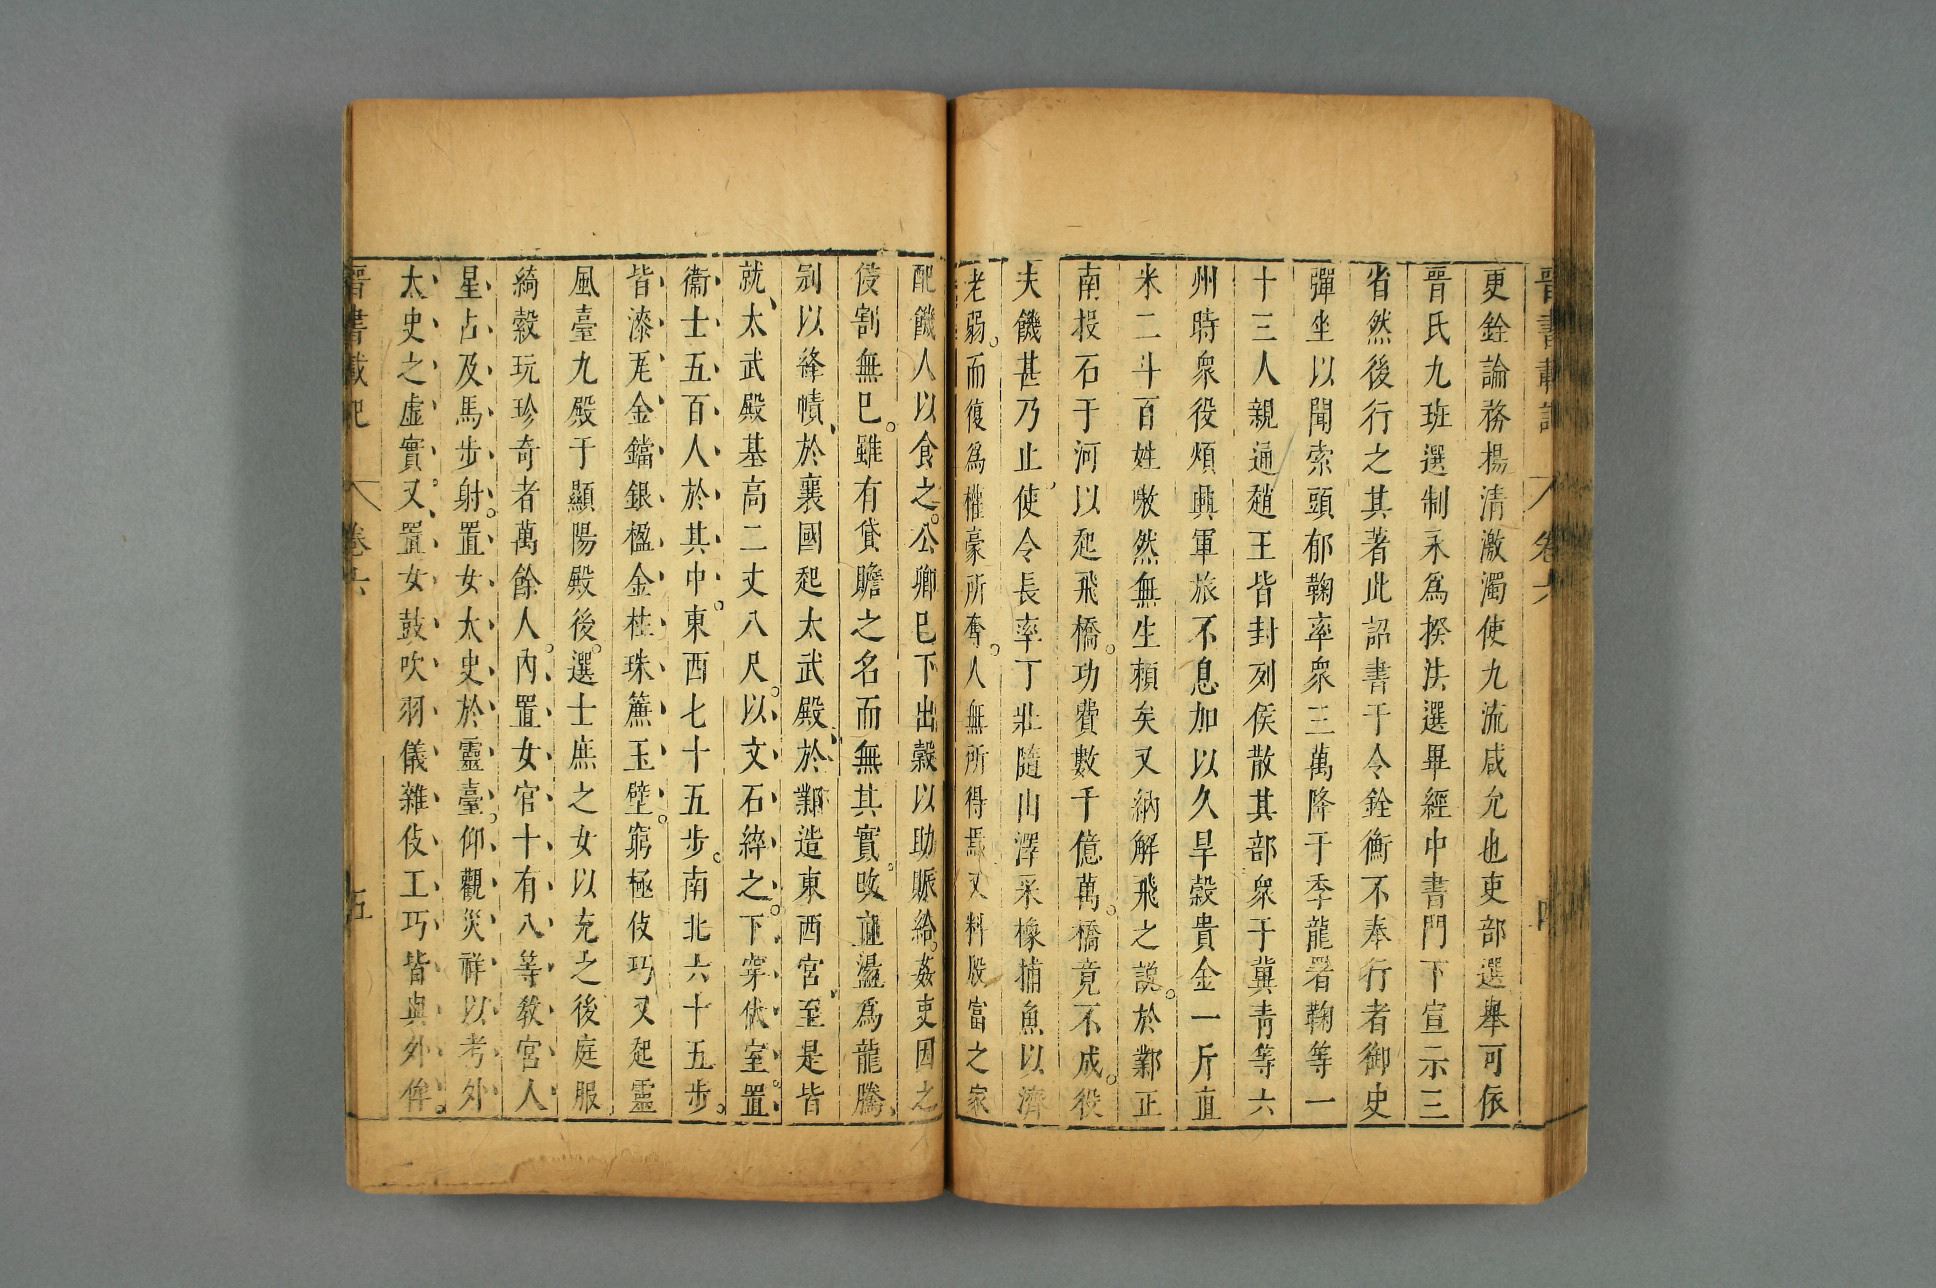 晉書載記 卷六 四
更銓論務揚清激濁使九流咸允也吏部選舉可依
晉氏九班選制永爲揆法選畢經中書門下宣示三
省然後行之其著此詔書于令銓衡不奉行者御史
彈坐以聞索頭郁鞠率衆三萬降于季龍署鞠等一
十三人親通趙王皆封列侯散其部衆于冀靑等六
州時衆役煩興軍旅不息加以久旱穀貴金一斤直
米二斗百姓嗷然無生賴矣又納解飛之說。於鄴正
南投石于河以起飛橋。功費數千億萬。橋竟不成。役
夫饑甚乃止、使令長率丁壯隨山澤采橡捕魚以濟
老弱。而復爲權豪所奪。人無所得焉又料殷富之家
配饑人以食之。公卿已下出穀以助賑給。姦吏因之
侵割無已。雖有貸贍之名而無其實。改直盪爲龍騰、
冠以絳幘、於襄國起太武殿、於鄴造東西宮、至是皆
就、太武殿基高二丈八尺。以文石綷之。下穿伏室。置
衞士五百人於其中。東西七十五步。南北六十五步。
皆漆瓦金鐺銀楹金柱珠簾玉壁。窮極伎巧又起靈
風臺九殿于顯陽殿後。選士庶之女以充之後庭服
綺縠玩珍奇者萬餘人。內置女官十有八等敎宮人
星占及馬步射。置女太史於靈臺。仰觀災祥以考外
太史之虛實。又置女鼓吹羽儀雜伎工巧皆與外侔。
晉書載記 卷六 五